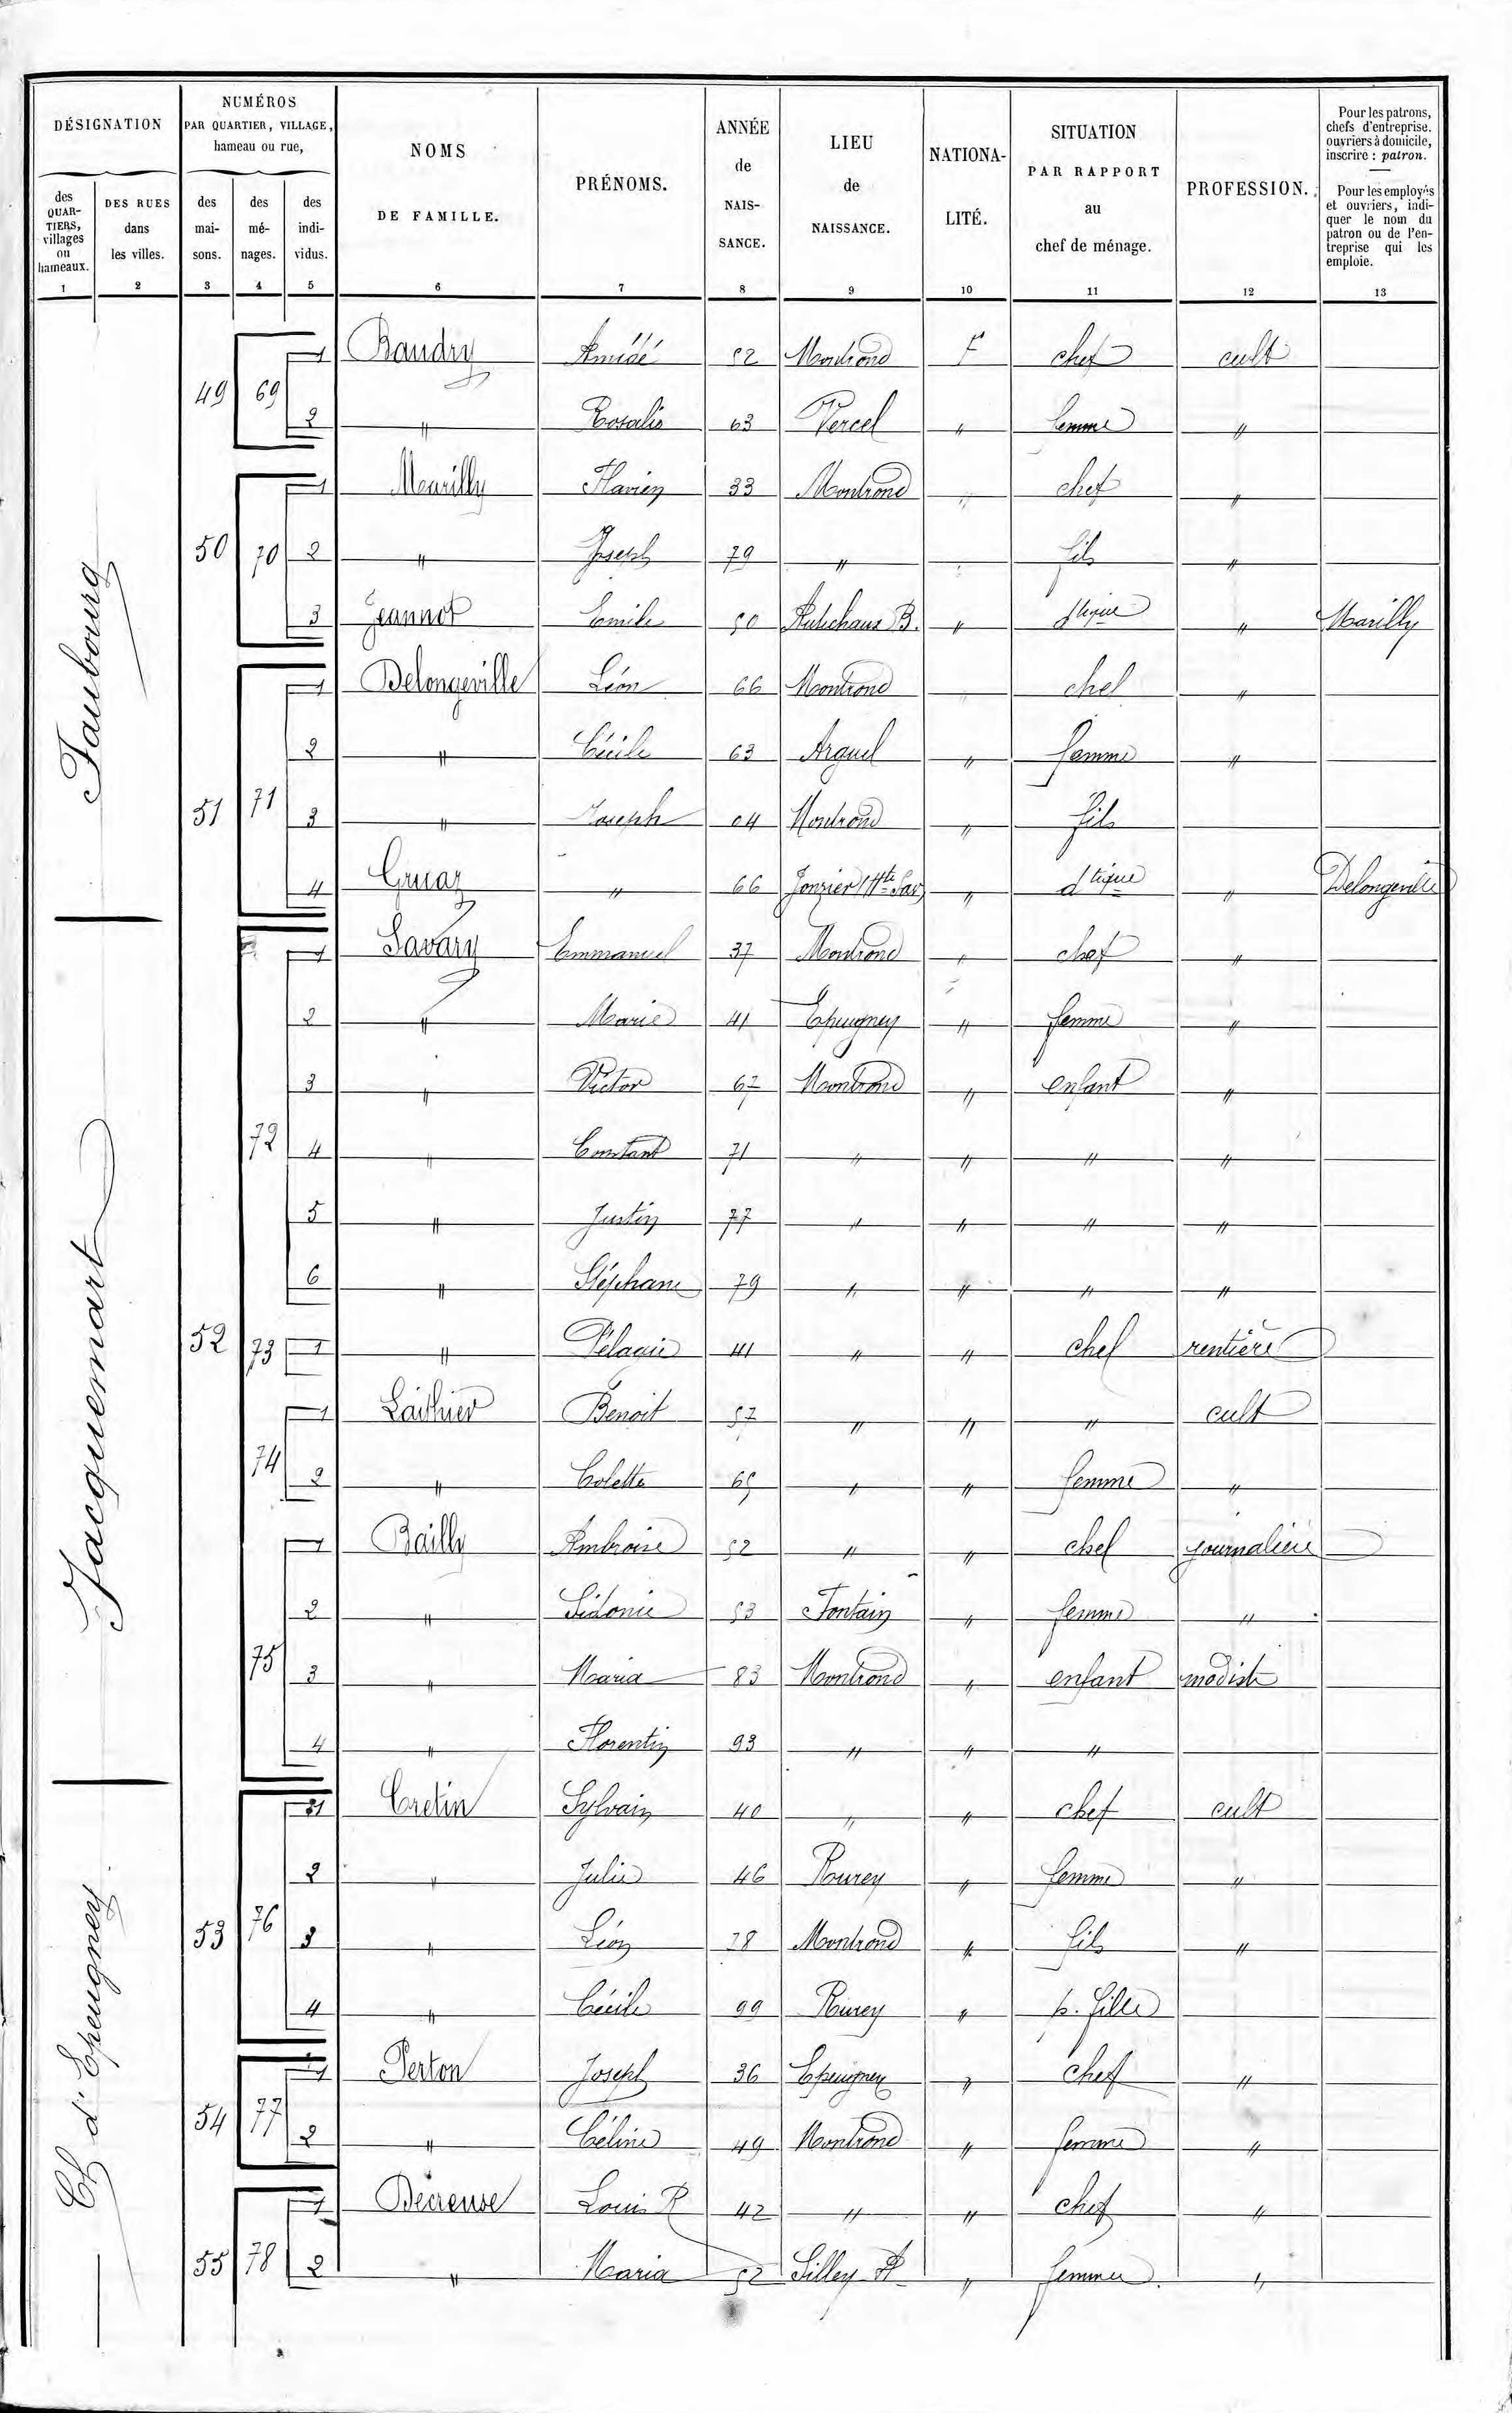 DÉSIGNATION
NUMÉROS
PAR QUARTIER, VILLAGE,
hameau ou rue,
NOMS
DE FAMILLE.
PRÉNOMS.
ANNÉE
de
NAIS-
SANCE.
LIEU
de
NAISSANCE.
NATIONA-
LITÉ.
SITUATION
PAR RAPPORT
au
chef de ménage.
PROFESSION.
Pour les patrons,
chefs d'entreprise.
ouvriers à domicile,
inscrire : patron.
Pour les employés
et ouvriers, indi-
quer le nom du
patron ou de l'en-
treprise qui les
emploie.
des
QUAR-
TIERS,
villages
ou
hameaux.
DES RUES
dans
les villes.
des
mai-
sons.
des
mé-
nages.
des
indi-
vidus.
1 2 3 4 5 6 7 8 9 10 11 12 13
Faubourg
49 69 1 Baudry Amédé 52 Montrond F chef cult
2 " Rosalie 63 Vercel " femme "
50 70 1 Flavien 33 Montrond " chef "
2 " Joseph 79 " " fils "
3 Jeannot Emile 50 B. " dtique " Marilly
51 71 1 Delongeville Léon 66 Montrond " chef "
2 " Cécile 63 Arguel " femme "
3 " Joseph 04 Montrond " fils
4 Gruaz " 66 Jonzier Hte Sav " dtique " Delongeville
Jacquemart
52 72 1 Savary Emmanuel 37 Montrond " chef "
2 " Marie 41 Epeugney " femme "
3 " Victor 67 Montrond " enfant "
4 " Constant 71 " " " "
5 " Justin 77 " " " "
6 " Stéphane 79 " " " "
73 1 " Pélagie 41 " " chef rentière
74 1 Laithier Benoit 57 " " " cult
2 " Colette 65 " " femme "
75 1 Bailly Ambroise 52 " " chef journalière
2 " Sidonie 53 Fontain " femme "
3 " Maria 83 Montrond " enfant modiste
4 " Florentin 93 " " "
Ch d'Epeugney
53 76 1 Cretin Sylvain 40 " " chef cult
2 " Julie 46 Rurey " femme "
3 " Léon 78 Montrond " fils "
4 " Cécile 99 Rurey " p. fille
54 77 1 Perton Joseph 36 Epeugney " chef "
2 " Céline 49 Montrond " femme "
55 78 1 Decreuse Louis R 42 " " chef "
2 " Maria 52 Silley " femme "